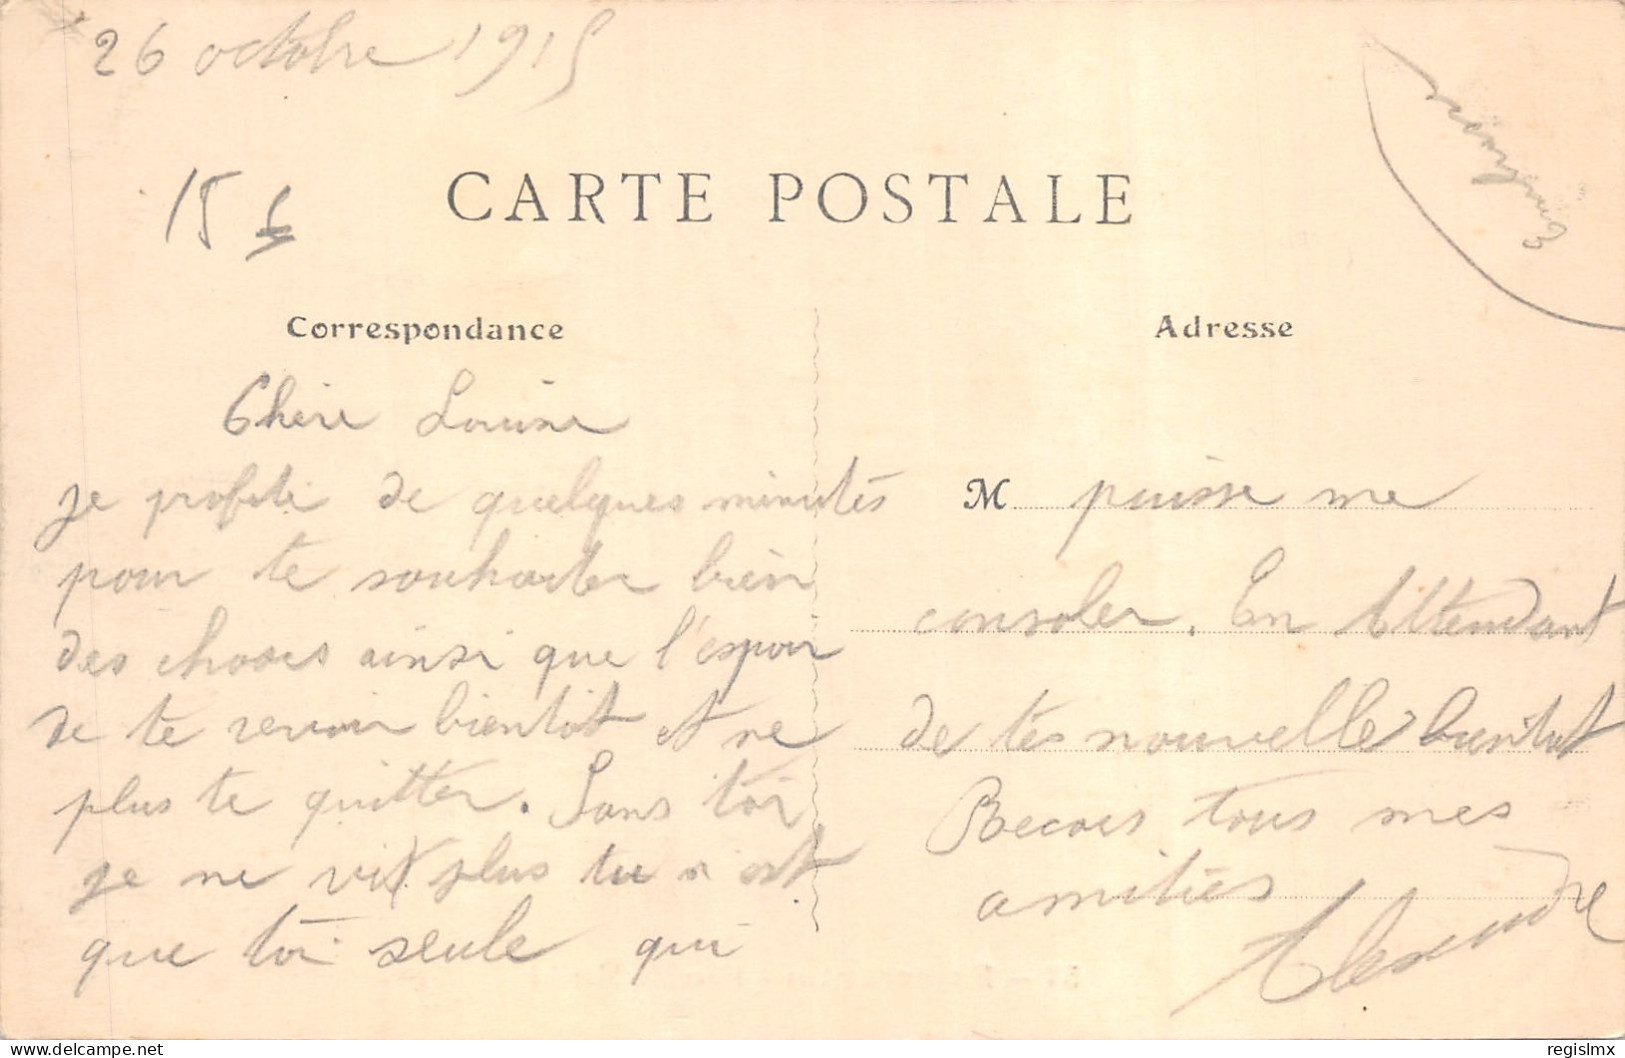 26 octobre 1915
15
CARTE POSTALE
Correspondance
Adresse
Chère Louise
je profite de quelques minutes
pour te souhaiter bien
des choses ainsi que l'espoir
de te revoir bientôt et ne
plus te quitter. Sans toi
je ne vit plus tu n est
que toi seule qui
M puisse me
consoler. En Attendant
de tes nouvelle bientot
Recois tous mes
amitiés
Alexandre
delcampe.net
regislmx